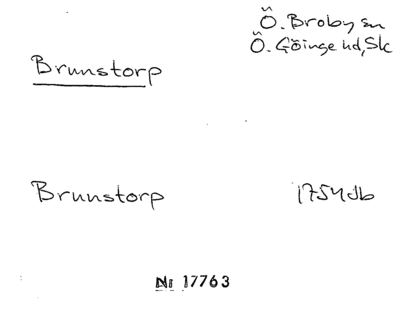 Ö. Broby sn
Ö. Göinge hd, Sk
Brunstorp
Brunstorp 1754 db
Nr 17763